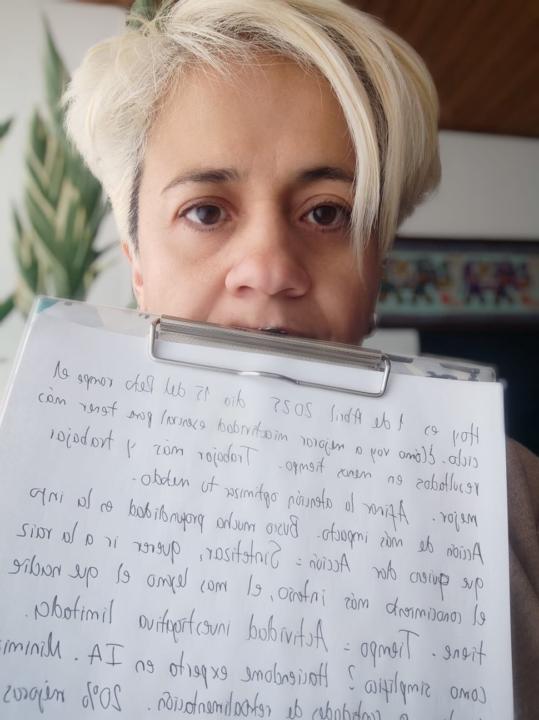 Hoy es 1 de Abril 2025 día 15 del Reto rompe el
ciclo. ¿Cómo voy a mejorar mi actividad esencial para tener más
resultados en menos tiempo. Trabajar más y trabajar
mejor. Afinar la atención optimizar tu método.
Acción de más impacto. Busco mucha profundidad en la info
que quiero dar Acción = Sintetizar, querer ir a la raiz
el conocimiento más intenso, el mas lejano el que nadie
tiene. Tiempo = Actividad investigativa limitada.
como simplifico? Haciendome experta en IA. Minimi
cantidades de retroalimentación. 20% mejoras